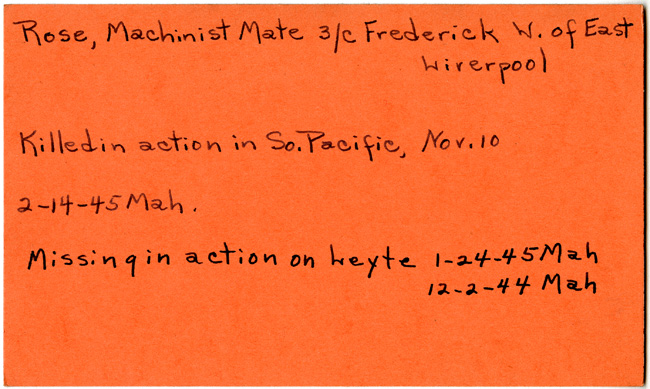 Rose, Machinist Mate 3/c Frederick W. of East
Liverpool
Killed in action in So. Pacific, Nov. 10
2-14-45 Mah.
Missing in action on Leyte 1-24-45 Mah
12-2-44 Mah